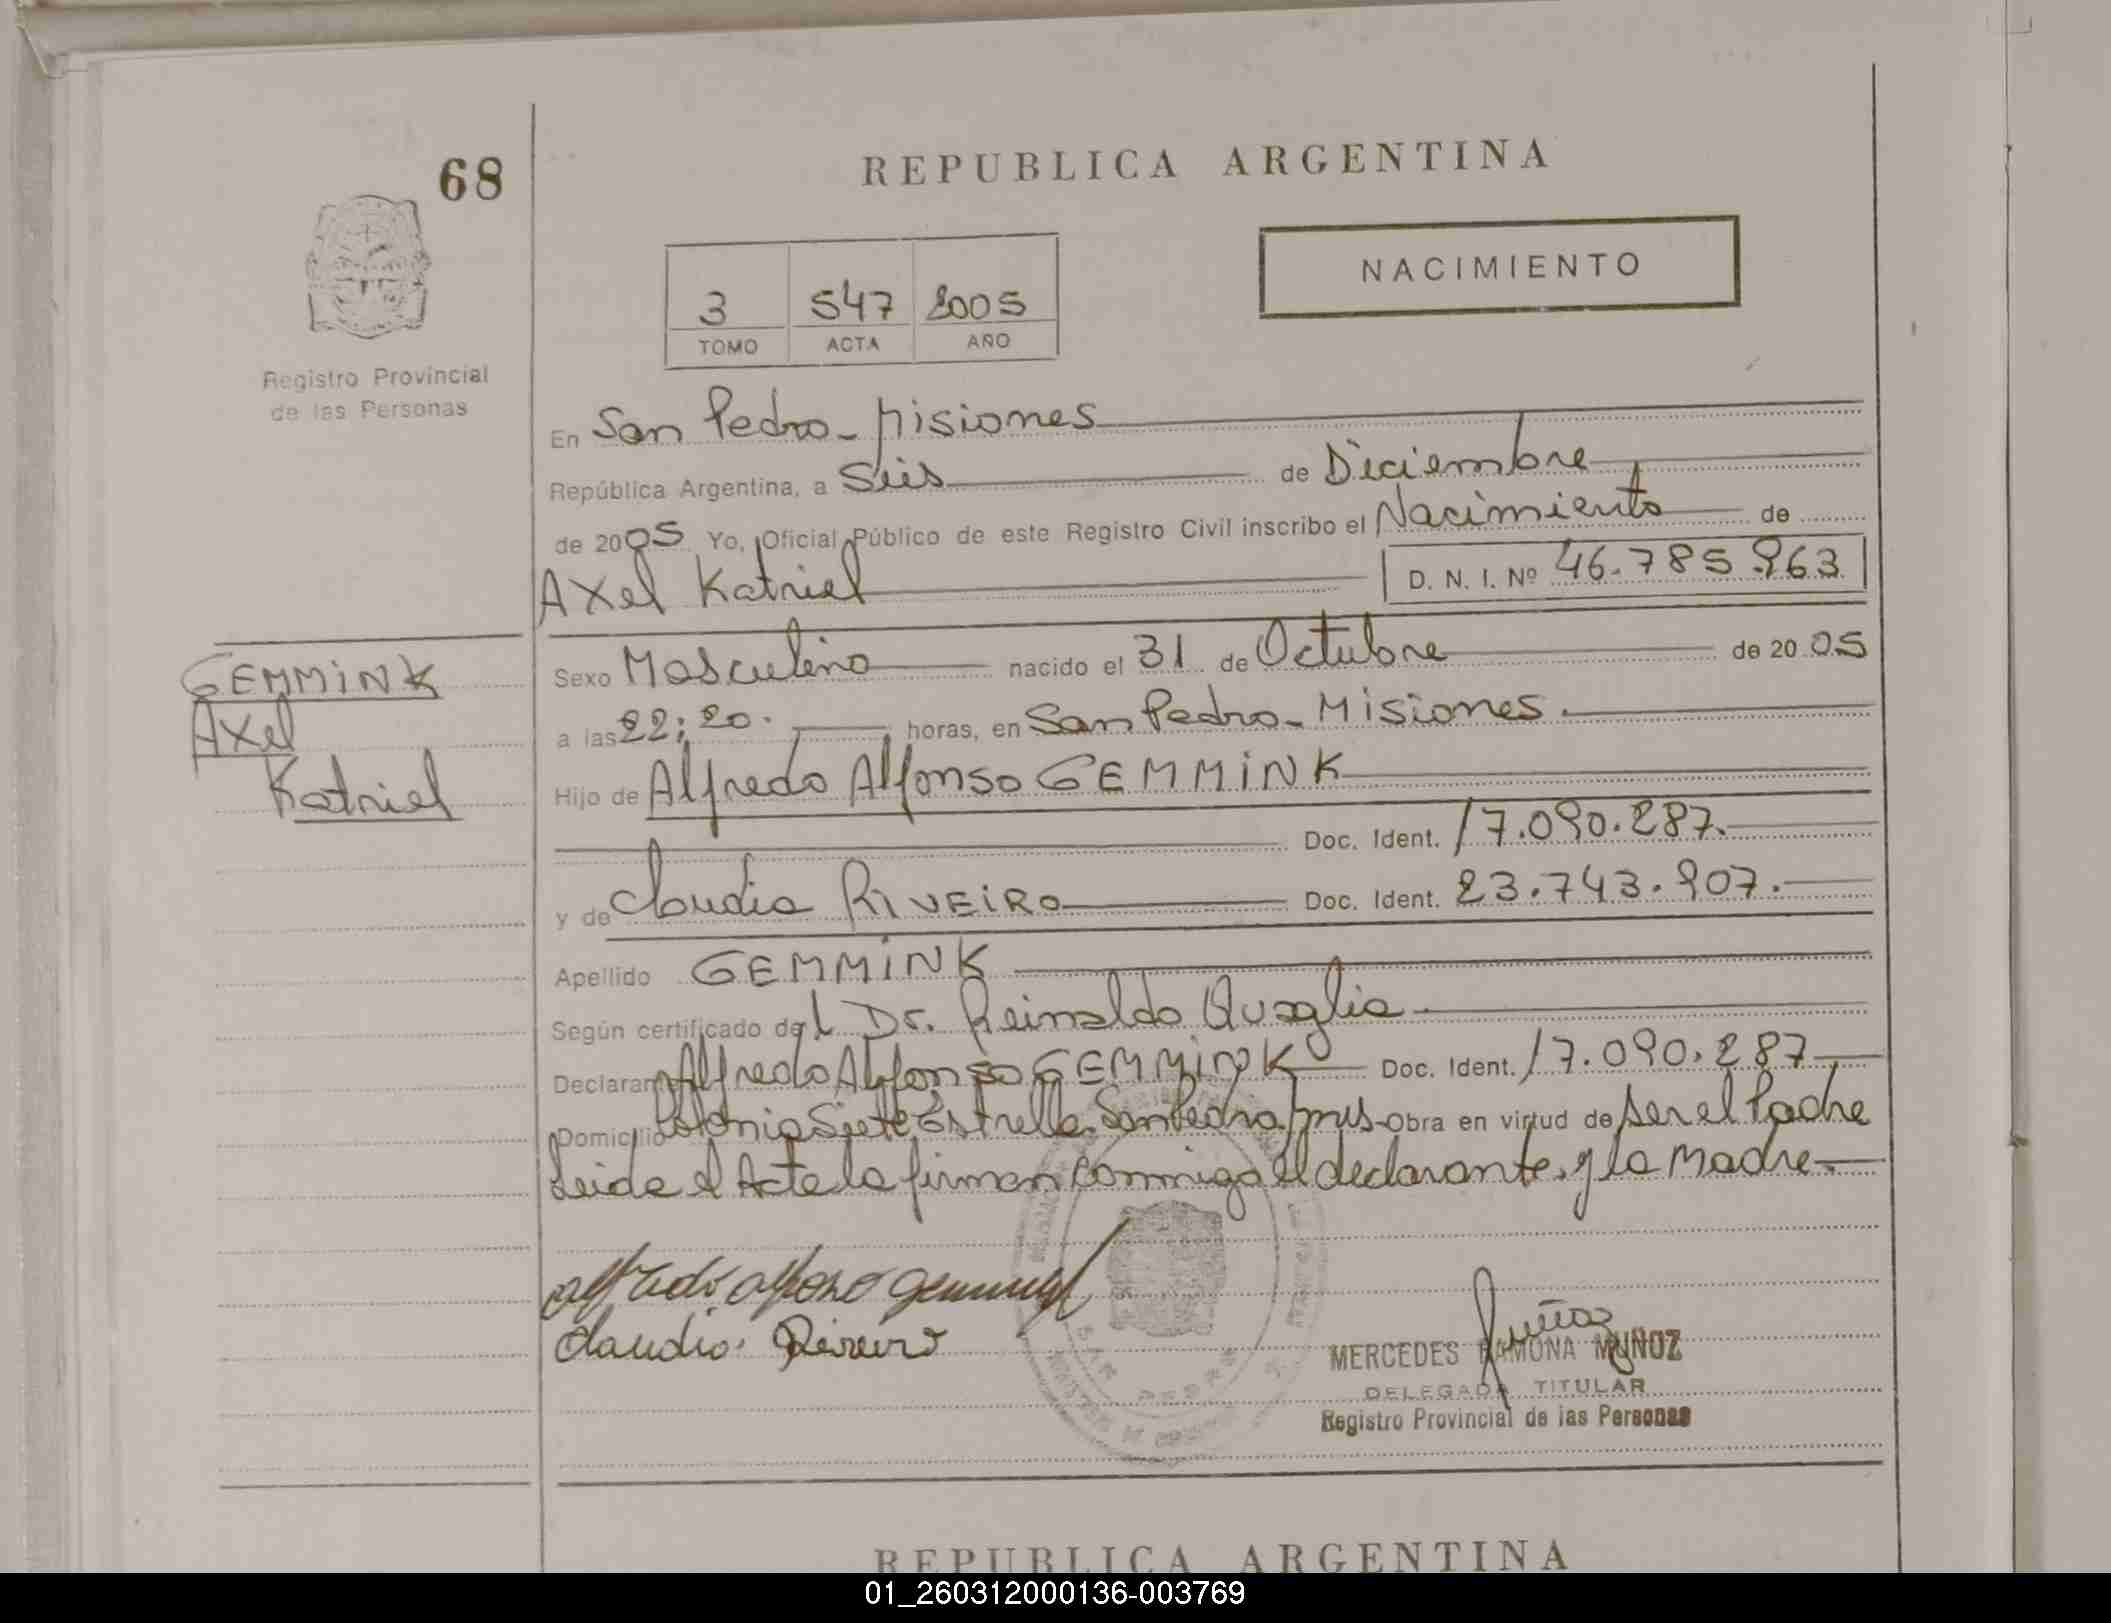 68
REPUBLICA ARGENTINA
NACIMIENTO
3 547 2005
TOMO ACTA AÑO
Registro Provincial
de las Personas
En San Pedro - Misiones
República Argentina, a Seis de Diciembre
de 2005 Yo, Oficial Público de este Registro Civil inscribo el Nacimiento de
Axel Katriel D. N. I. Nº 46.785.963
GEMMINK
Axel
Katriel
Sexo Masculino nacido el 31 de Octubre de 2005
a las 22:20. horas, en San Pedro - Misiones.
Hijo de Alfredo Alfonso GEMMINK
Doc. Ident. 17.090.287.
y de Claudia RIVEIRO Doc. Ident. 23.743.907.
Apellido GEMMINK
Según certificado del Dr. Reinaldo Quaglia
Declarante Alfredo Alfonso GEMMINK Doc. Ident. 17.090.287
Domicilio Colonia Siete Estrella. San Pedro, Mis. obra en virtud de ser el Padre
Leida el Acta la firman conmigo el declarante, y la Madre.
alfredo alfonso gemmink
Claudia Riveiro
Muñoz
MERCEDES RAMONA MUÑOZ
DELEGADA TITULAR
Registro Provincial de las Personas
SAN PEDRO
REPUBLICA ARGENTINA
01_260312000136-003769